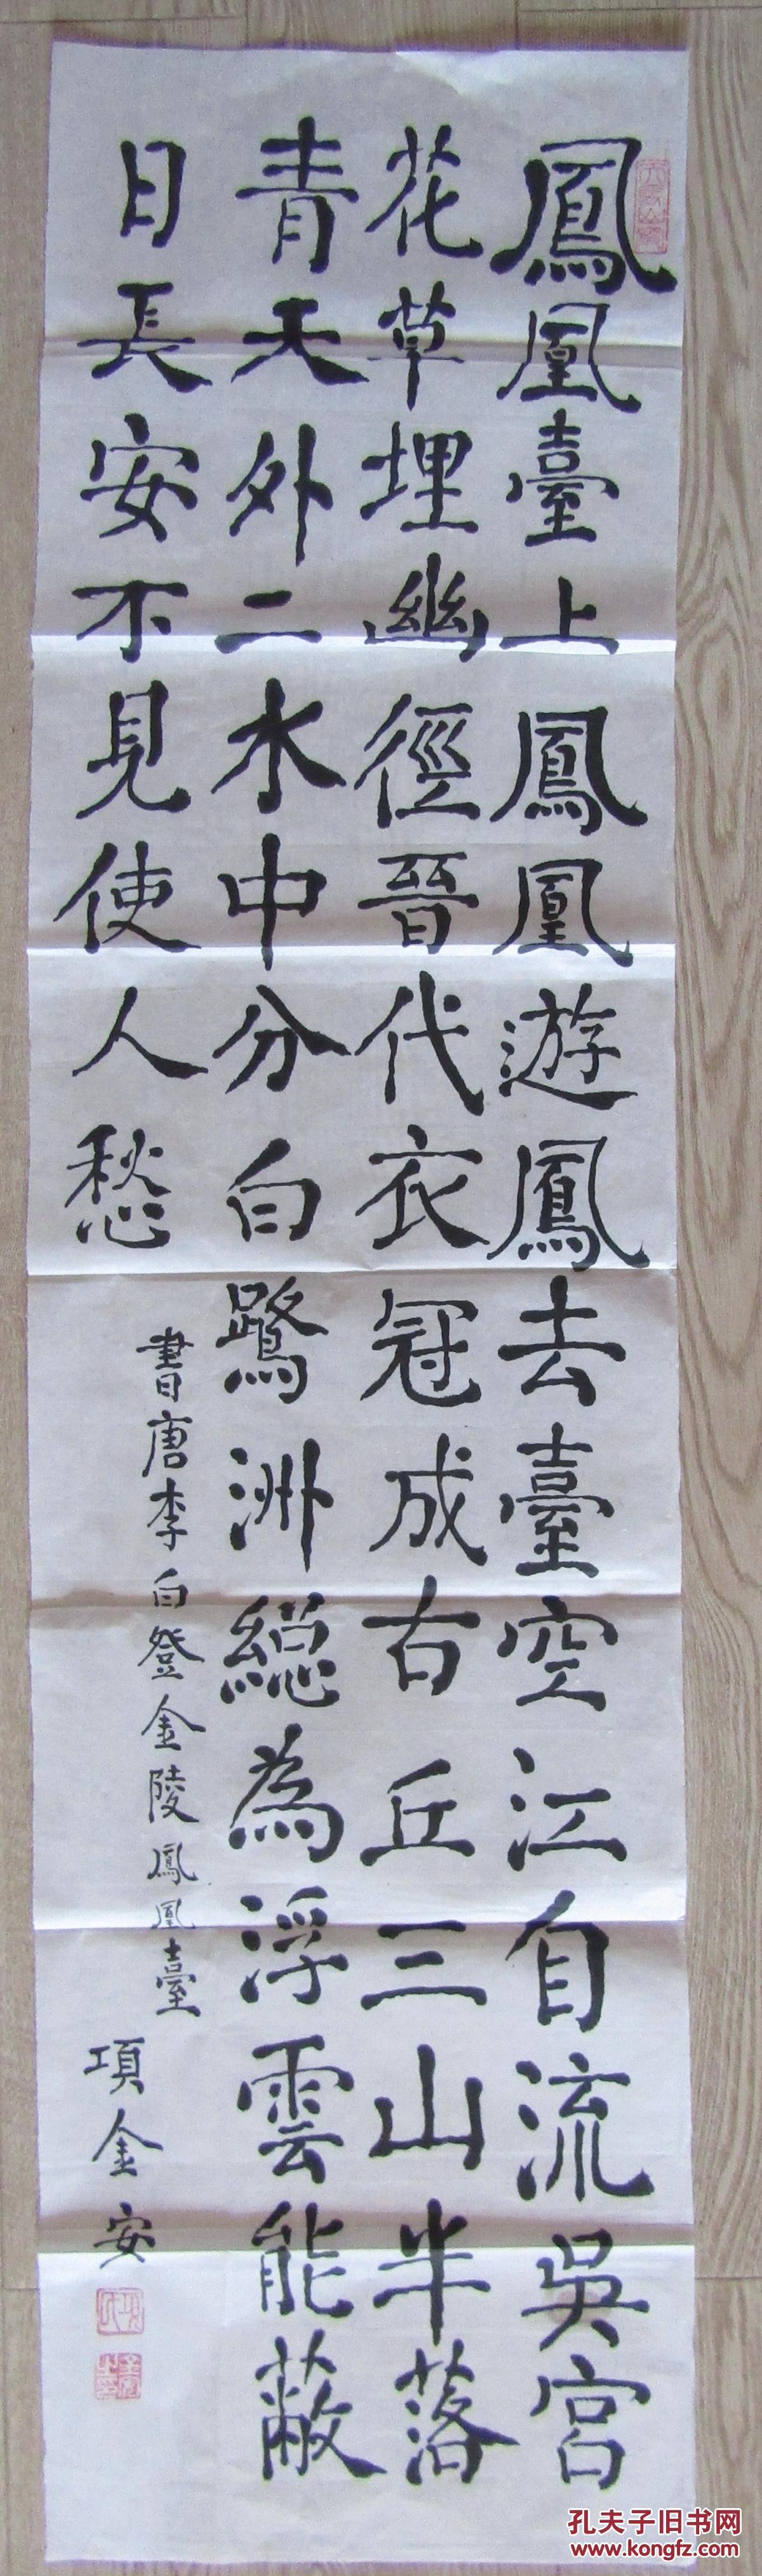 鳳凰臺上鳳凰遊鳳去臺空江自流吳宮
花草埋幽徑晉代衣冠成古丘三山半落
青天外二水中分白鷺洲総為浮雲能蔽
日長安不見使人愁
書唐李白登金陵鳳凰臺
項金安
孔夫子旧书网
www.kongfz.com